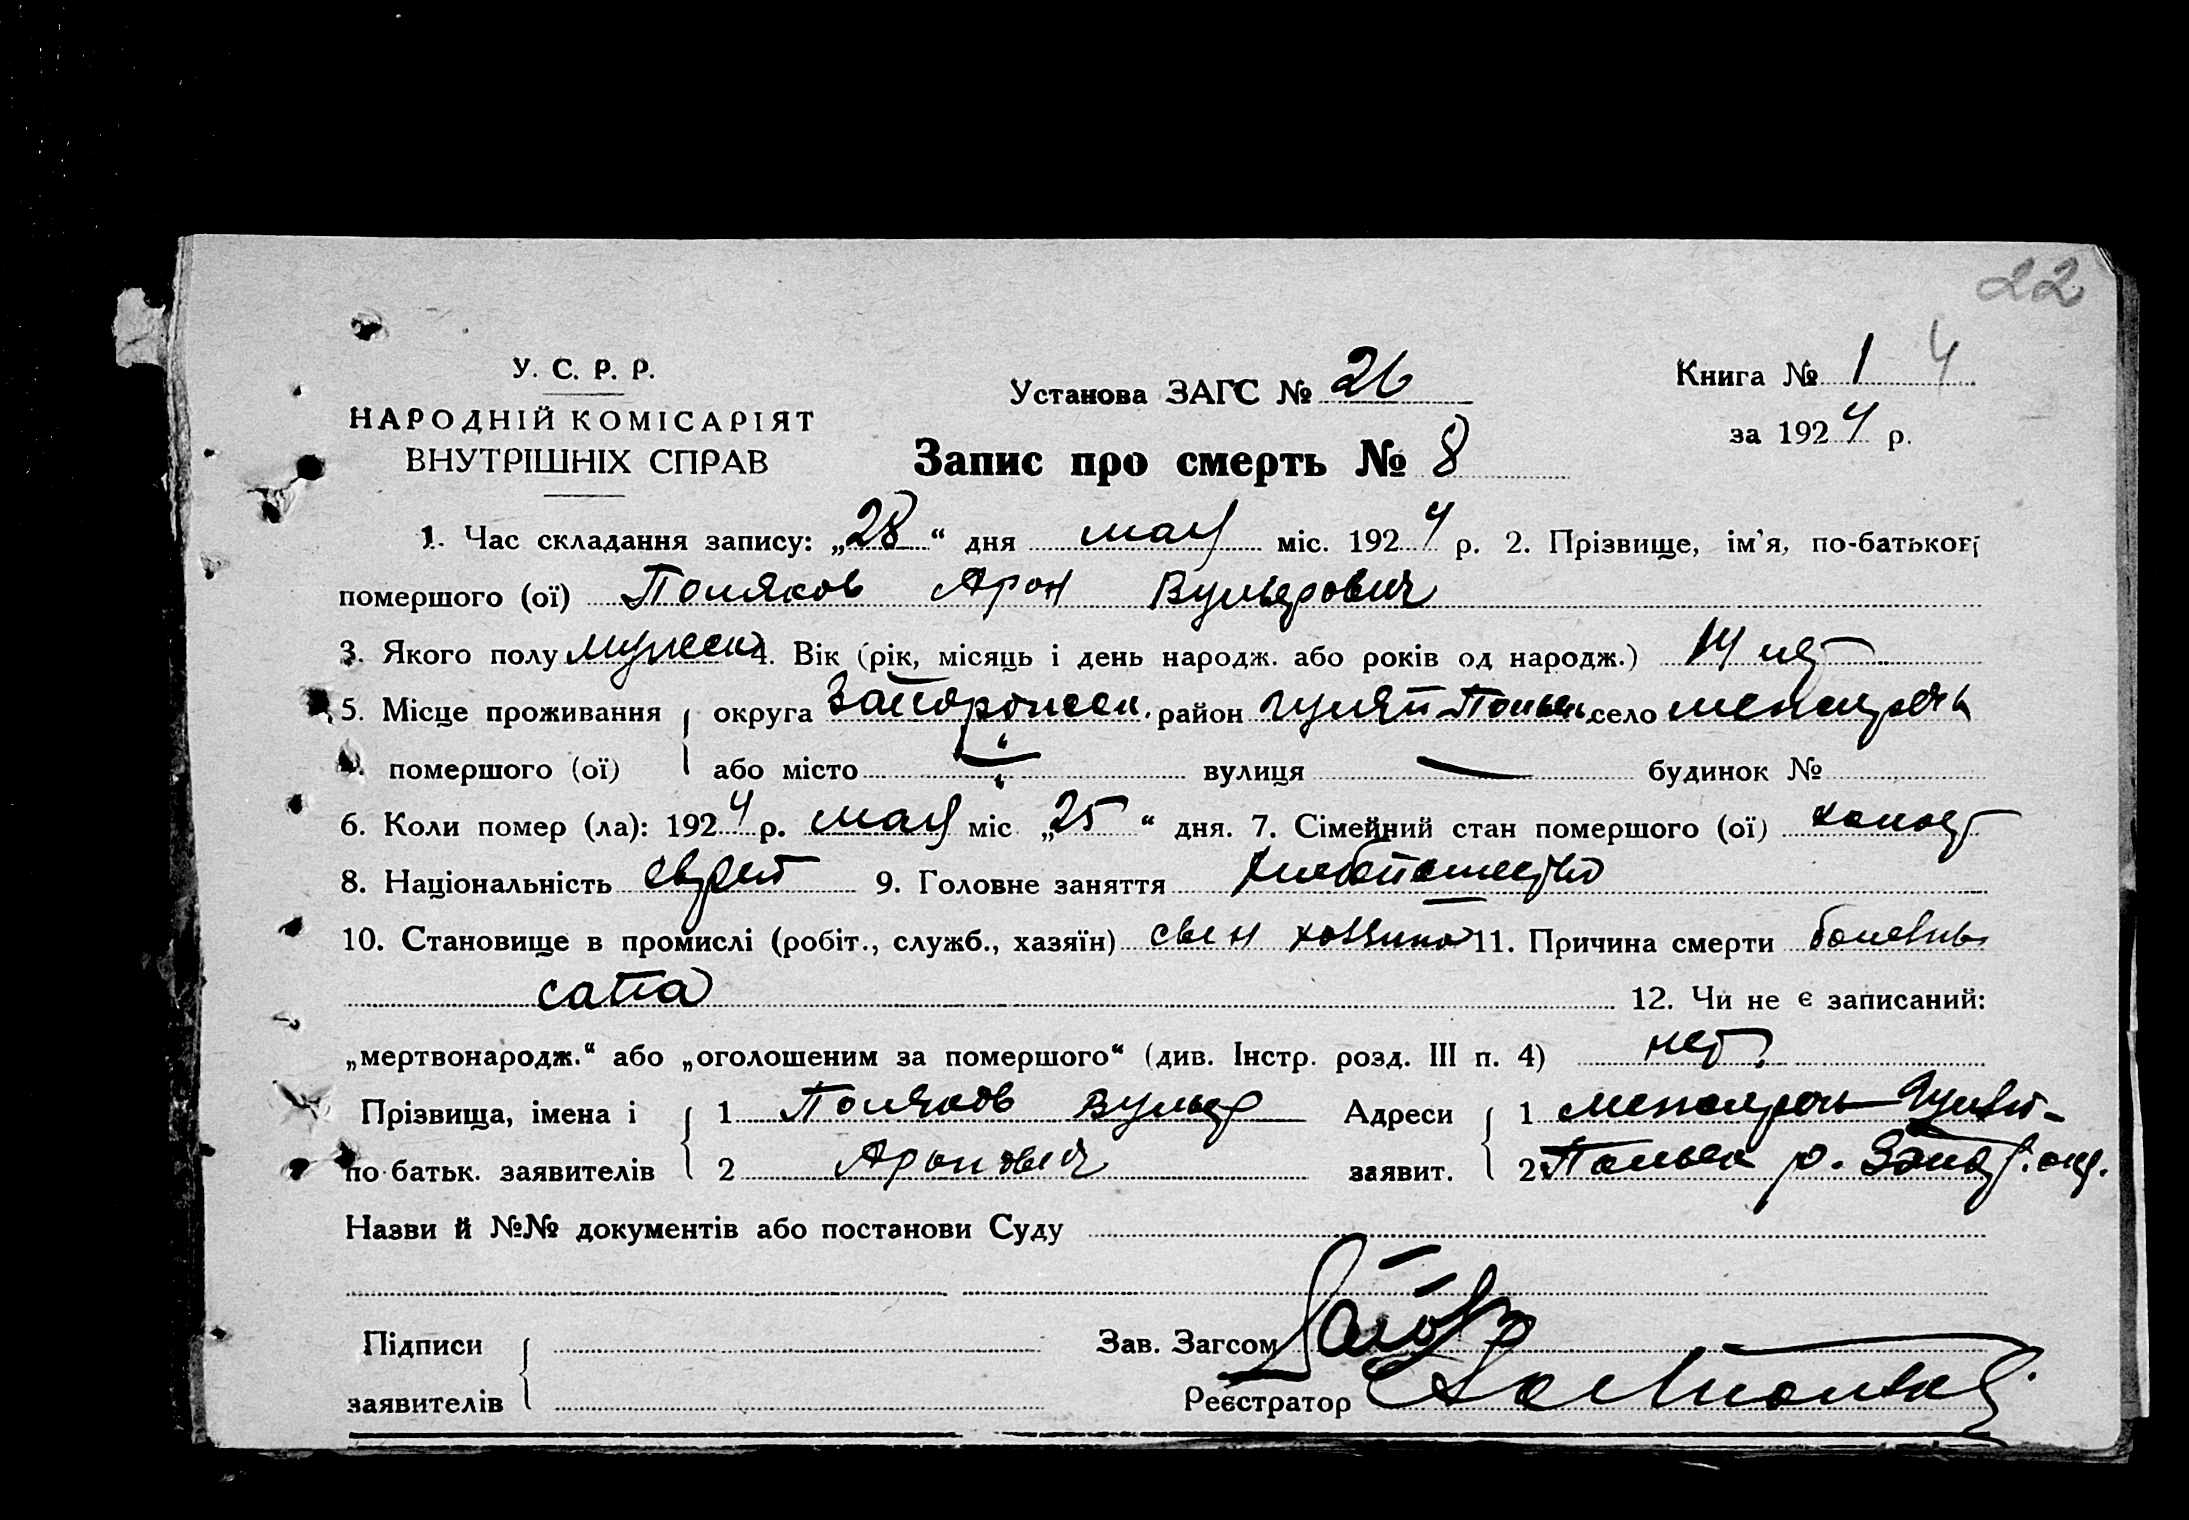 22
У. С. Р. Р.
НАРОДНІЙ КОМІСАРІЯТ
ВНУТРІШНІХ СПРАВ
Установа ЗАГС № 26
Книга № 1 4
за 1924 р.
Запис про смерть № 8
1. Час складання запису: „28“ дня мая міс. 1924 р. 2. Прізвище, ім'я, по-батькові
помершого (ої) Поляков Арон Вульфович
3. Якого полу мужеск 4. Вік (рік, місяць і день народж. або років од народж.) 14 лет
5. Місце проживання округа Запорожск. район Гуляй Польск. село Межеречь
помершого (ої) або місто — вулиця — будинок №
6. Коли помер (ла): 1924 р. мая міс „25“ дня. 7. Сімейний стан помершого (ої) холост
8. Національність еврей 9. Головне заняття хлебопашество
10. Становище в промислі (робіт., служб., хазяїн) сын хозяина 11. Причина смерти болезнь
сапа 12. Чи не є записаний:
„мертвонародж.“ або „оголошеним за помершого“ (див. Інстр. розд. III п. 4) нет
Прізвища, імена і 1 Поляков Вульф Адреси 1 Межеречь Гуляй-
по батьк. заявителів 2 Аронович заявит. 2 Польск р. Запор. окр.
Назви й №№ документів або постанови Суду
Підписи Зав. Загсом
заявителів Реєстратор